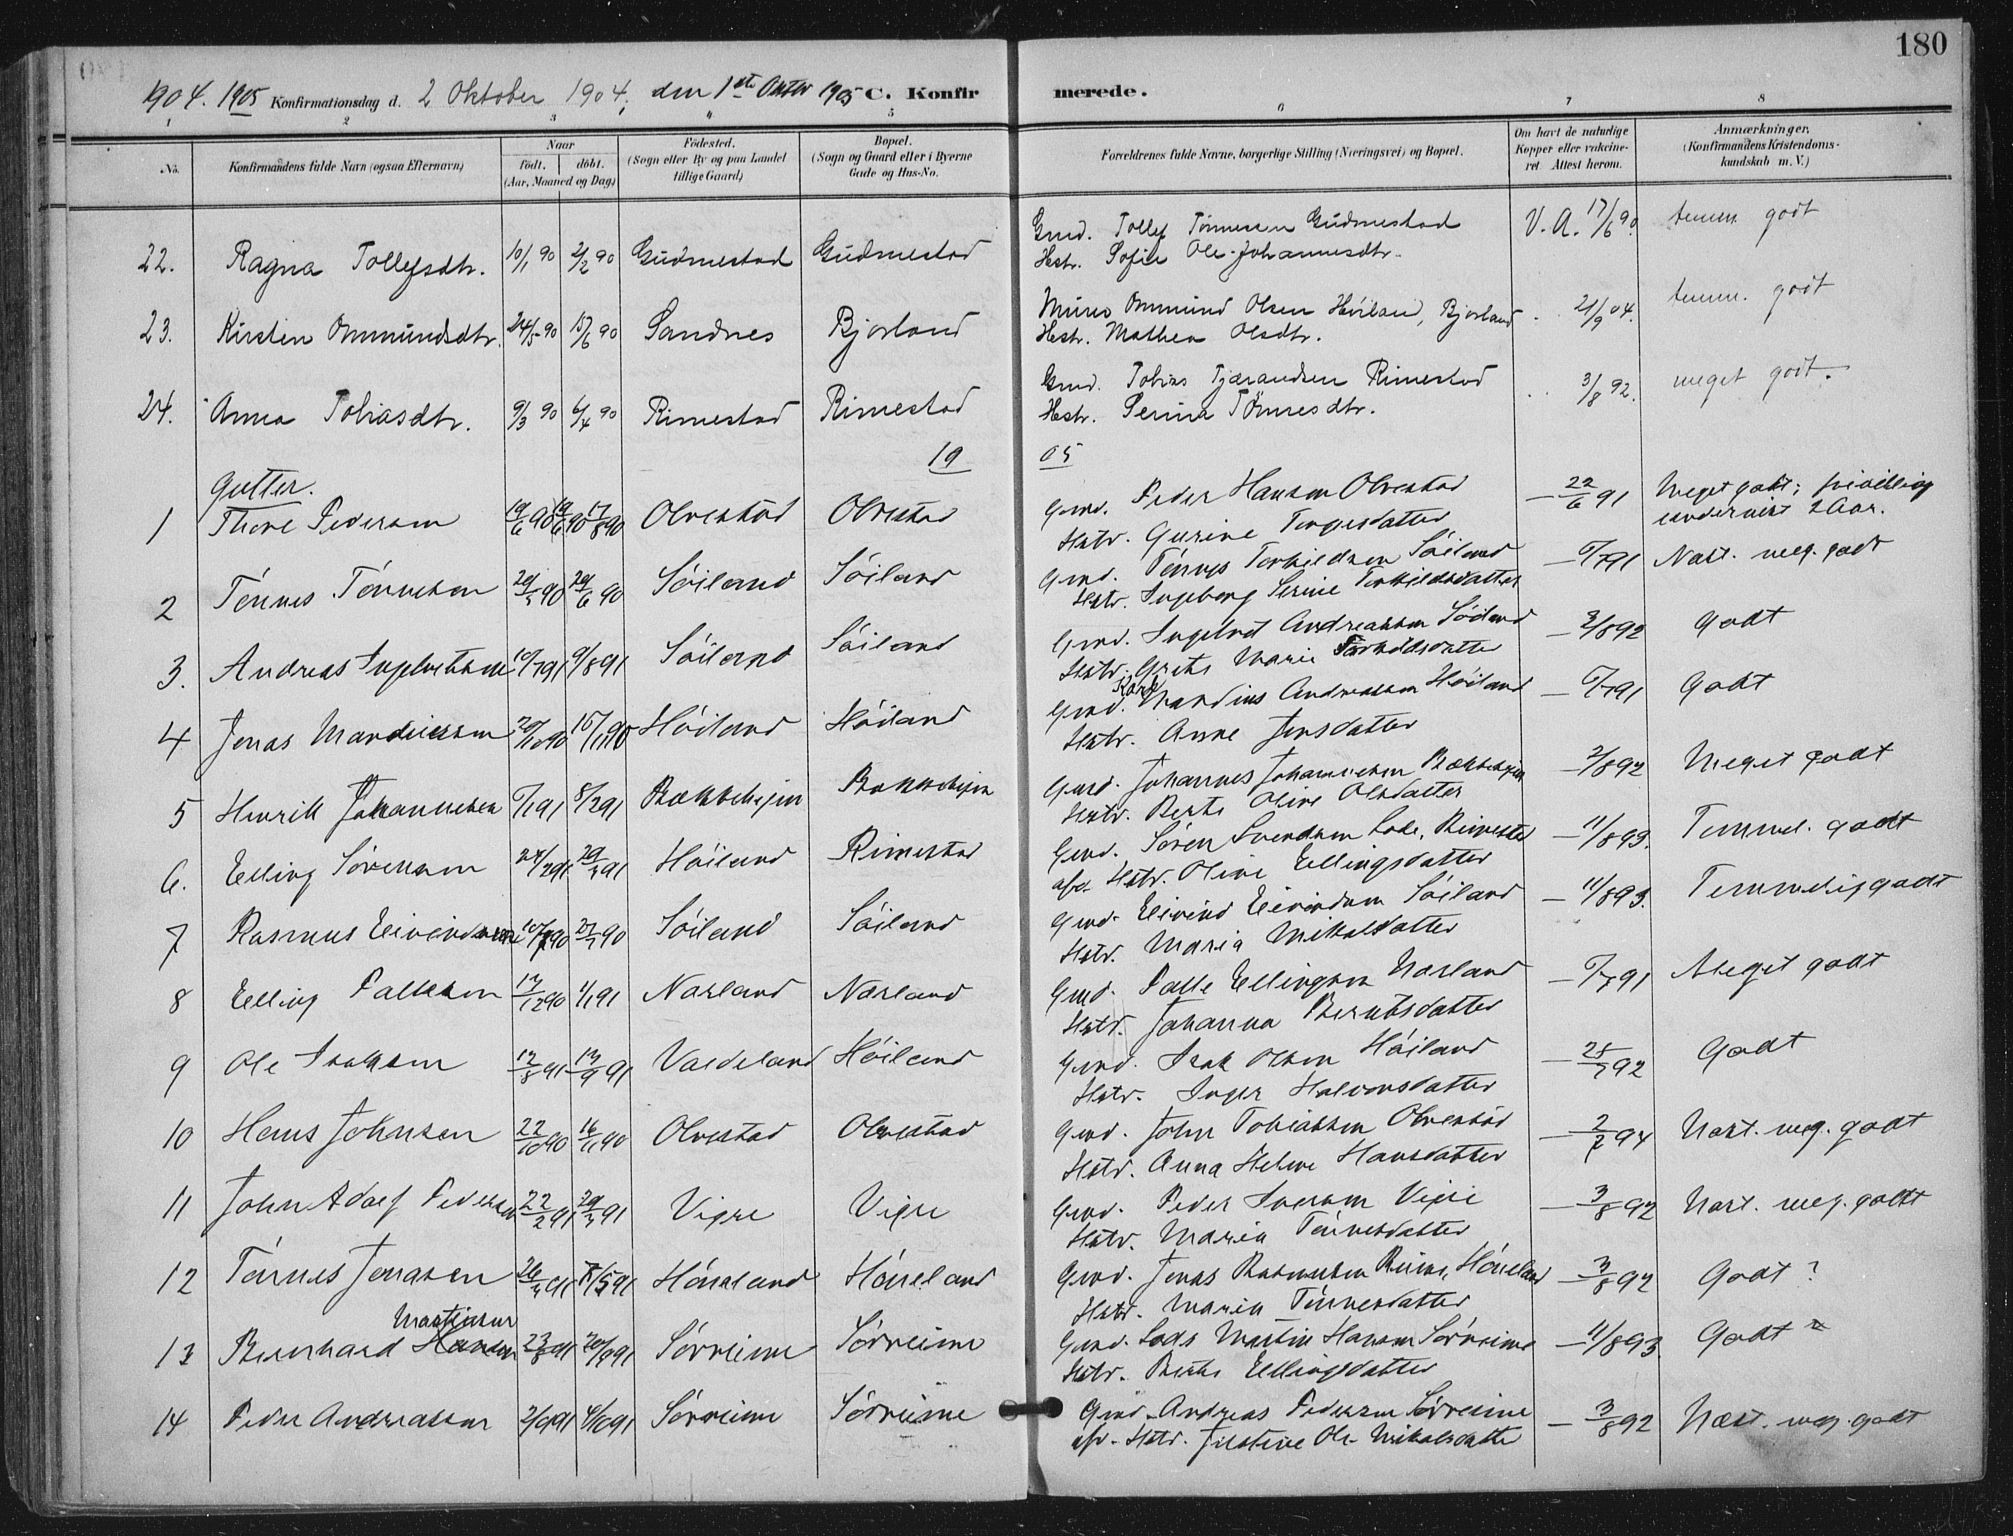 180
1904. 1905 Konfirmationsdag d. 2 Oktober 1904, den 1ste Oktbr 1905 C. Konfirmerede.
1 2 3 4 5 6 7 8
No. Konfirmandens fulde Navn (ogsaa Efternavn) Naar födt. döbt. (Aar, Maaned og Dag.) Födested. (Sogn eller By og paa Landet tillige Gaard) Bopæl. (Sogn og Gaard eller i Byerne Gade og Hus-No. Forældrenes fulde Navne, borgerlige Stilling (Næringsvei) og Bopæl. Om havt de naturlige Kopper eller vaccineret Attest herom. Anmærkninger. (Konfirmandens Kristendomskundskab m. V.)
22. Ragna Tollefsdtr. 10/1 90 2/2 90 Gudmestad Gudmestad Gmd. Tollef Tønnesen Gudmestad V. A. 17/6 90. temm. godt
Hstr. Sofie Ole-Johannesdtr.
23. Kirsten Ommundsdtr. 24/5 90 15/6 90 Sandnes Bjorland Murer Ommund Olsen Høiland, Bjorland 21/9 04. temm. godt
Hstr. Mathea Olsdtr.
24. Anna Tobiasdtr. 9/3 90 6/4 90 Rimestad Rimestad Gmd. Tobias Tjærandsen Rimestad 3/8 92. meget godt.
Hstr. Serina Tönnesdtr.
19 05
Gutter.
1 Thore Pedersen 19/6 90 17/8 90 Olvestad Olvestad Gmd. Peder Hansen Olvestad – 22/6 91 Meget godt; frivillig
Hstr. Gurine Torgersdatter undervist 2 Aar.
2 Tönnes Tönnesen 90 29/6 90 Söiland Söiland Gmd. Tönnes Torkildsen Söiland – 6/7 91 Næst. meg. godt
Hstr. Ingeborg Serine Torkildsdatter
3. Andreas Ingebretsen 10/7 91 9/8 91 Söiland Söiland Gmd. Ingebret Andreassen Söiland – 3/8 92 Godt
Hstr. Grete Marie Torkildsdatter
4 Jonas Mandiussen 20/10 90 16/11 90 Höiland Höiland Gmd. Mandius Andreassen Höiland – 6/7 91 Godt
Hstr. Anne Jonsdatter
5 Henrik Johannesen 6/1 91 8/2 91 Gmd. Johannes Johannesen 3/8 92 Meget godt
Hstr. Berte Oline Olsdatter
6. Elling Sörensen 24/2 91 29/3 91 Höiland Rimestad Gmd. Sören Svendsen Lode, Rimestad – 11/8 93. Temmel. godt
afd. Hstr. Oline Ellingsdatter
7 Rasmus Eivindsen 90 27/7 90 Söiland Söiland Gmd. Eivind Eivindsen Söiland – 11/8 93. Temmelig godt
Hstr. Maria Mikalsdatter
8 Elling Pallesen 17/12 90 1/1 91 Narland Narland Gmd. Palle Ellingsen Narland – 6/7 91 Meget godt
Hstr. Johanna Berntsdatter
9 Ole Isaksen 17/8 91 13/9 91 Valdeland Höiland Gmd. Isak Olsen Höiland – 25/7 92 Godt
Hstr. Inger Halvorsdatter
10 Hans Johnsen 22/10 90 16/11 90 Olvestad Olvestad Gmd. John Tobiassen Olvestad – 2/7 94 Næst. meg. godt
Hstr. Anna Helene Hansdatter
11 John Adolf Pedersen 22/2 91 29/3 91 Vigre Vigre Gmd. Peder Iversen Vigre – 3/8 92 Næst. meg. godt
Hstr. Maria Tönnesdatter
12 Tönnes Jonassen 26/3 91 /5 91 Höneland Höneland Gmd. Jonas Rasmussen Reime, Höneland – 3/8 92 Godt ?
Hstr. Maria Tönnesdatter
13 Bernhard Martinsen 23/8 91 20/9 91 Sörreime Sörreime Gmd. Lads Martin Hansen Sörreime – 11/8 93. Godt
Hstr. Berte Ellingsdatter
14 Peder Andreassen 2/9 91 4/10 91 Sörreime Sörreime Gmd. Andreas Pedersen Sörreime – 3/8 92 Næst. meg. godt
Hstr. Ole Mikalsdatter